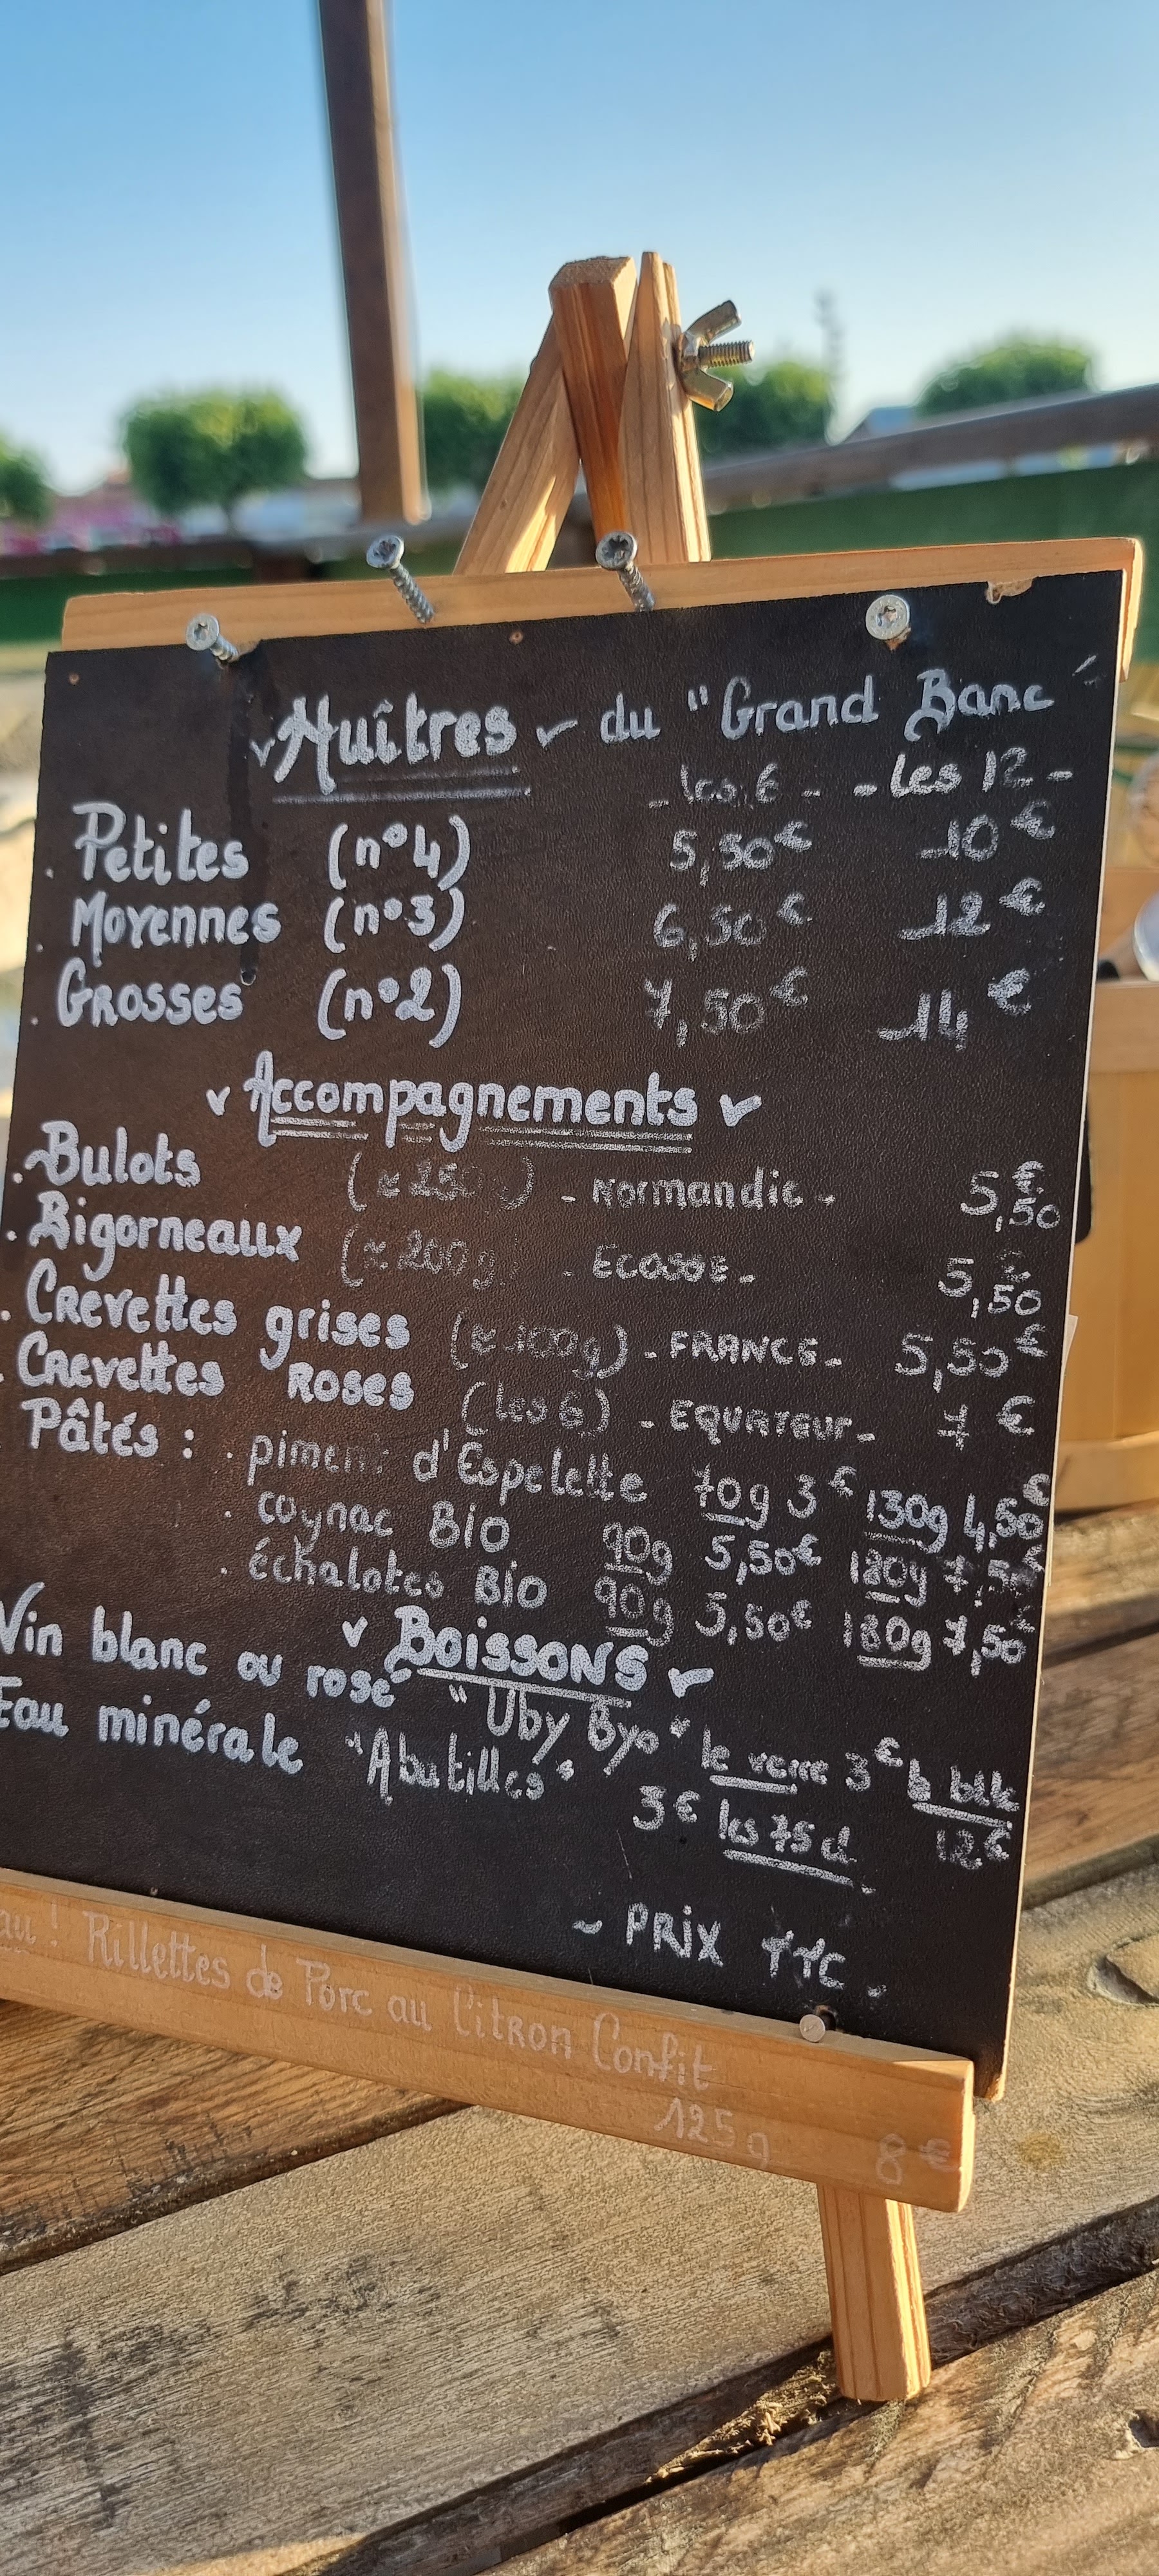 Huîtres du "Grand Banc"
- les 6 - - les 12 -
. Petites (n°4) 5,50€ 10€
. Moyennes (n°3) 6,50€ 12€
. Grosses (n°2) 7,50€ 14€
Accompagnements
. Bulots (≈ 250g) - Normandie - 5,50€
. Bigorneaux (≈ 200g) - Ecosse - 5,50€
. Crevettes grises (≈ 100g) - FRANCE - 5,50€
. Crevettes Roses (les 6) - EQUATEUR - 7€
Pâtés : . piment d'Espelette 70g 3€ 130g 4,50€
. cognac Bio 90g 5,50€ 180g 7,50€
. échalotes Bio 90g 5,50€ 180g 7,50€
Boissons
Vin blanc ou rosé "Uby Byo" le verre 3€ la blle 12€
Eau minérale "Abatilles" 3€ les 75cl
- PRIX TTC -
! Rillettes de Porc au Citron Confit
125g 8€